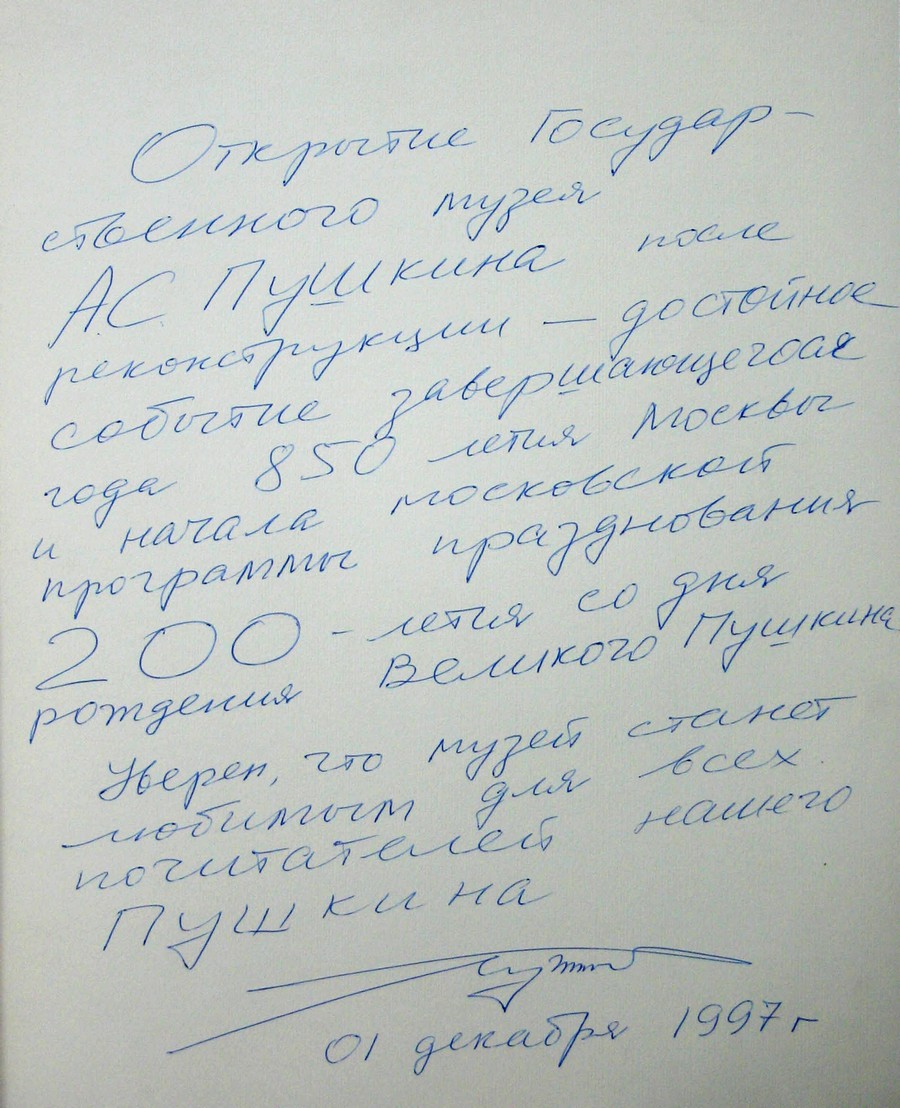 Открытие Государ-
ственного музея
А.С. Пушкина после
реконструкции — достойное
событие завершающегося
года 850 летия Москвы
и начала московской
программы празднования
200 - летия со дня
рождения Великого Пушкина
Уверен, что музей станет
любимым для всех
почитателей нашего
Пушкина
01 декабря 1997 г